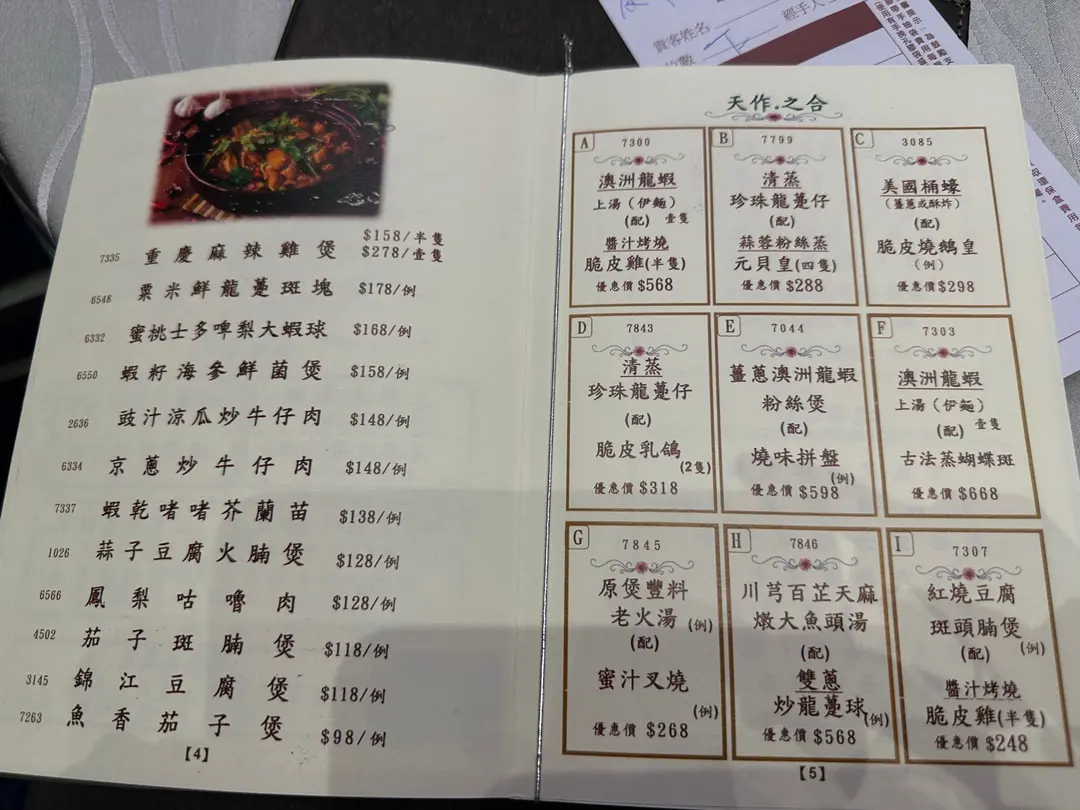 經手人
貴客姓名
7335 重慶麻辣雞煲 $158/半隻
$278/壹隻
6548 粟米鮮龍躉斑塊 $178/例
6332 蜜桃士多啤梨大蝦球 $168/例
6550 蝦籽海參鮮菌煲 $158/例
2636 豉汁涼瓜炒牛仔肉 $148/例
6334 京蔥炒牛仔肉 $148/例
7337 蝦乾啫啫芥蘭苗 $138/例
1026 蒜子豆腐火腩煲 $128/例
6566 鳳梨咕嚕肉 $128/例
4502 茄子斑腩煲 $118/例
3145 錦江豆腐煲 $118/例
7263 魚香茄子煲 $98/例
【4】
天作.之合
A 7300
澳洲龍蝦
上湯(伊麵)
(配) 壹隻
醬汁烤燒
脆皮雞(半隻)
優惠價 $568
B 7799
清蒸
珍珠龍躉仔
(配)
蒜蓉粉絲蒸
元貝皇(四隻)
優惠價 $288
C 3085
美國桶蠔
(薑蔥或酥炸)
(配)
脆皮燒鵝皇
(例)
優惠價 $298
D 7843
清蒸
珍珠龍躉仔
(配)
脆皮乳鴿
(2隻)
優惠價 $318
E 7044
薑蔥澳洲龍蝦
粉絲煲
(配)
燒味拼盤
(例)
優惠價 $598
F 7303
澳洲龍蝦
上湯(伊麵)
(配) 壹隻
古法蒸蝴蝶斑
優惠價 $668
G 7845
原煲豐料
老火湯 (例)
(配)
蜜汁叉燒
(例)
優惠價 $268
H 7846
川芎百芷天麻
燉大魚頭湯
(配)
雙蔥
炒龍躉球(例)
優惠價 $568
I 7307
紅燒豆腐
斑頭腩煲
(配) (例)
醬汁烤燒
脆皮雞(半隻)
優惠價 $248
【5】